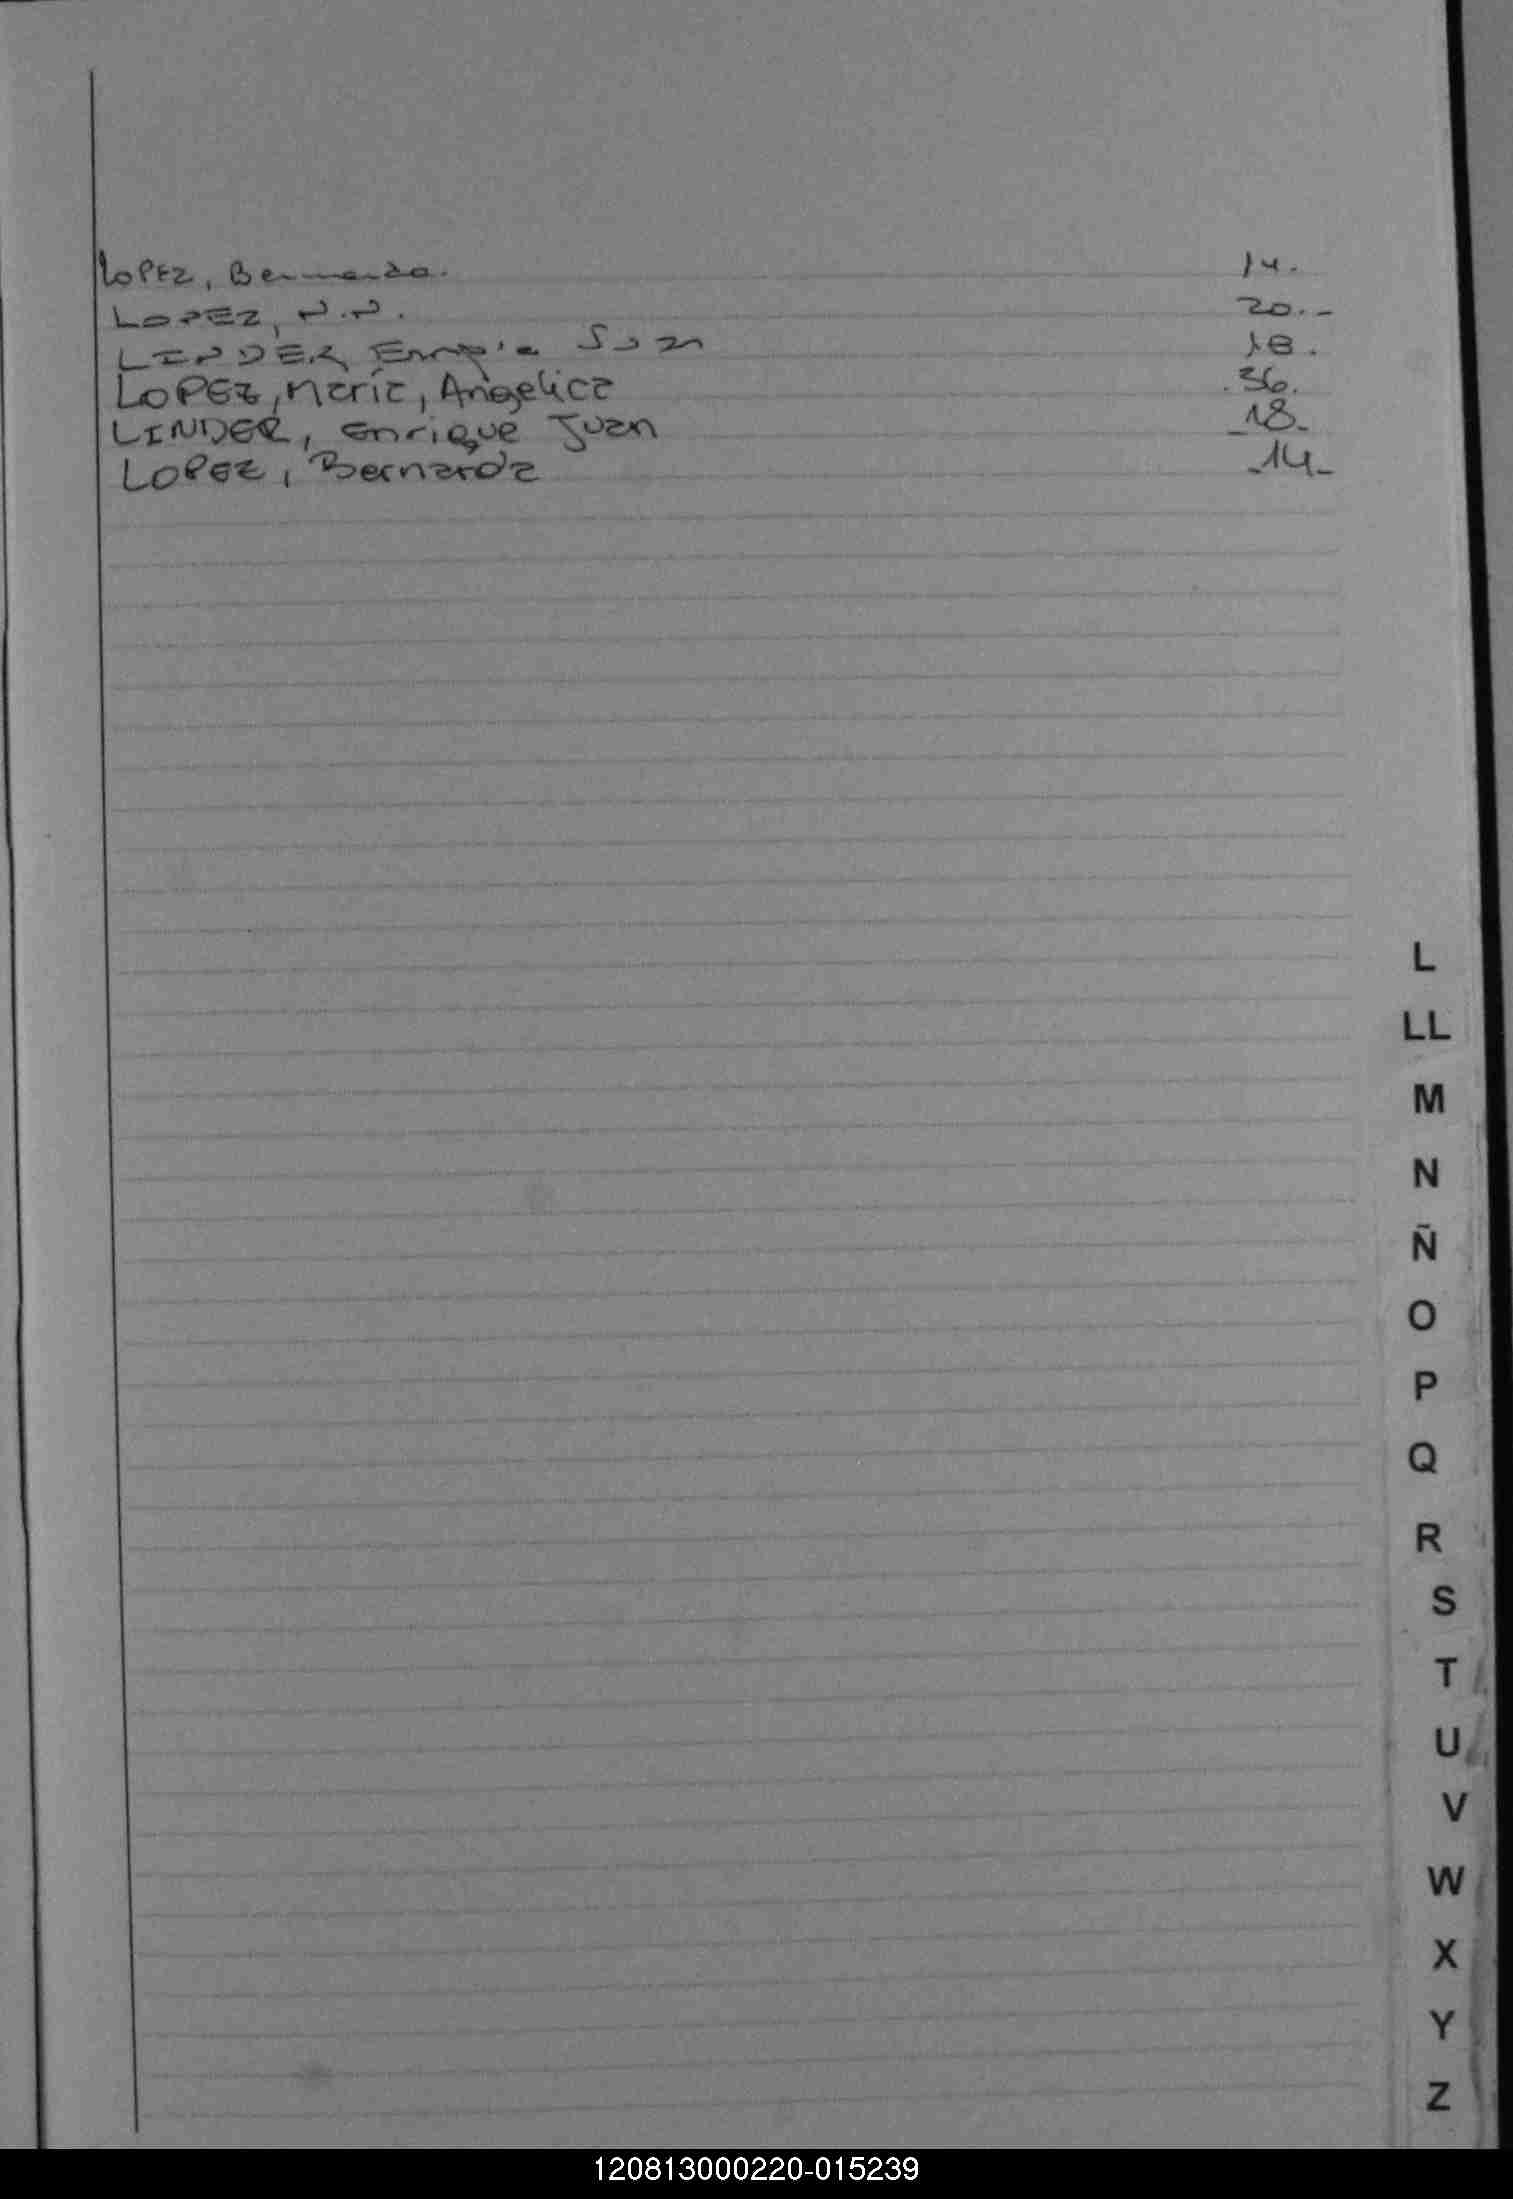 LOPEZ, Bernarda. 14.
LOPEZ, N.N. 20.-
LINDER, Juan 18.
LOPEZ, Maria, Angelica .36.
LINDER, Enrique Juan -18-
LOPEZ, Bernarda -14-
L
LL
M
N
Ñ
O
P
Q
R
S
T
U
V
W
X
Y
Z
120813000220-015239